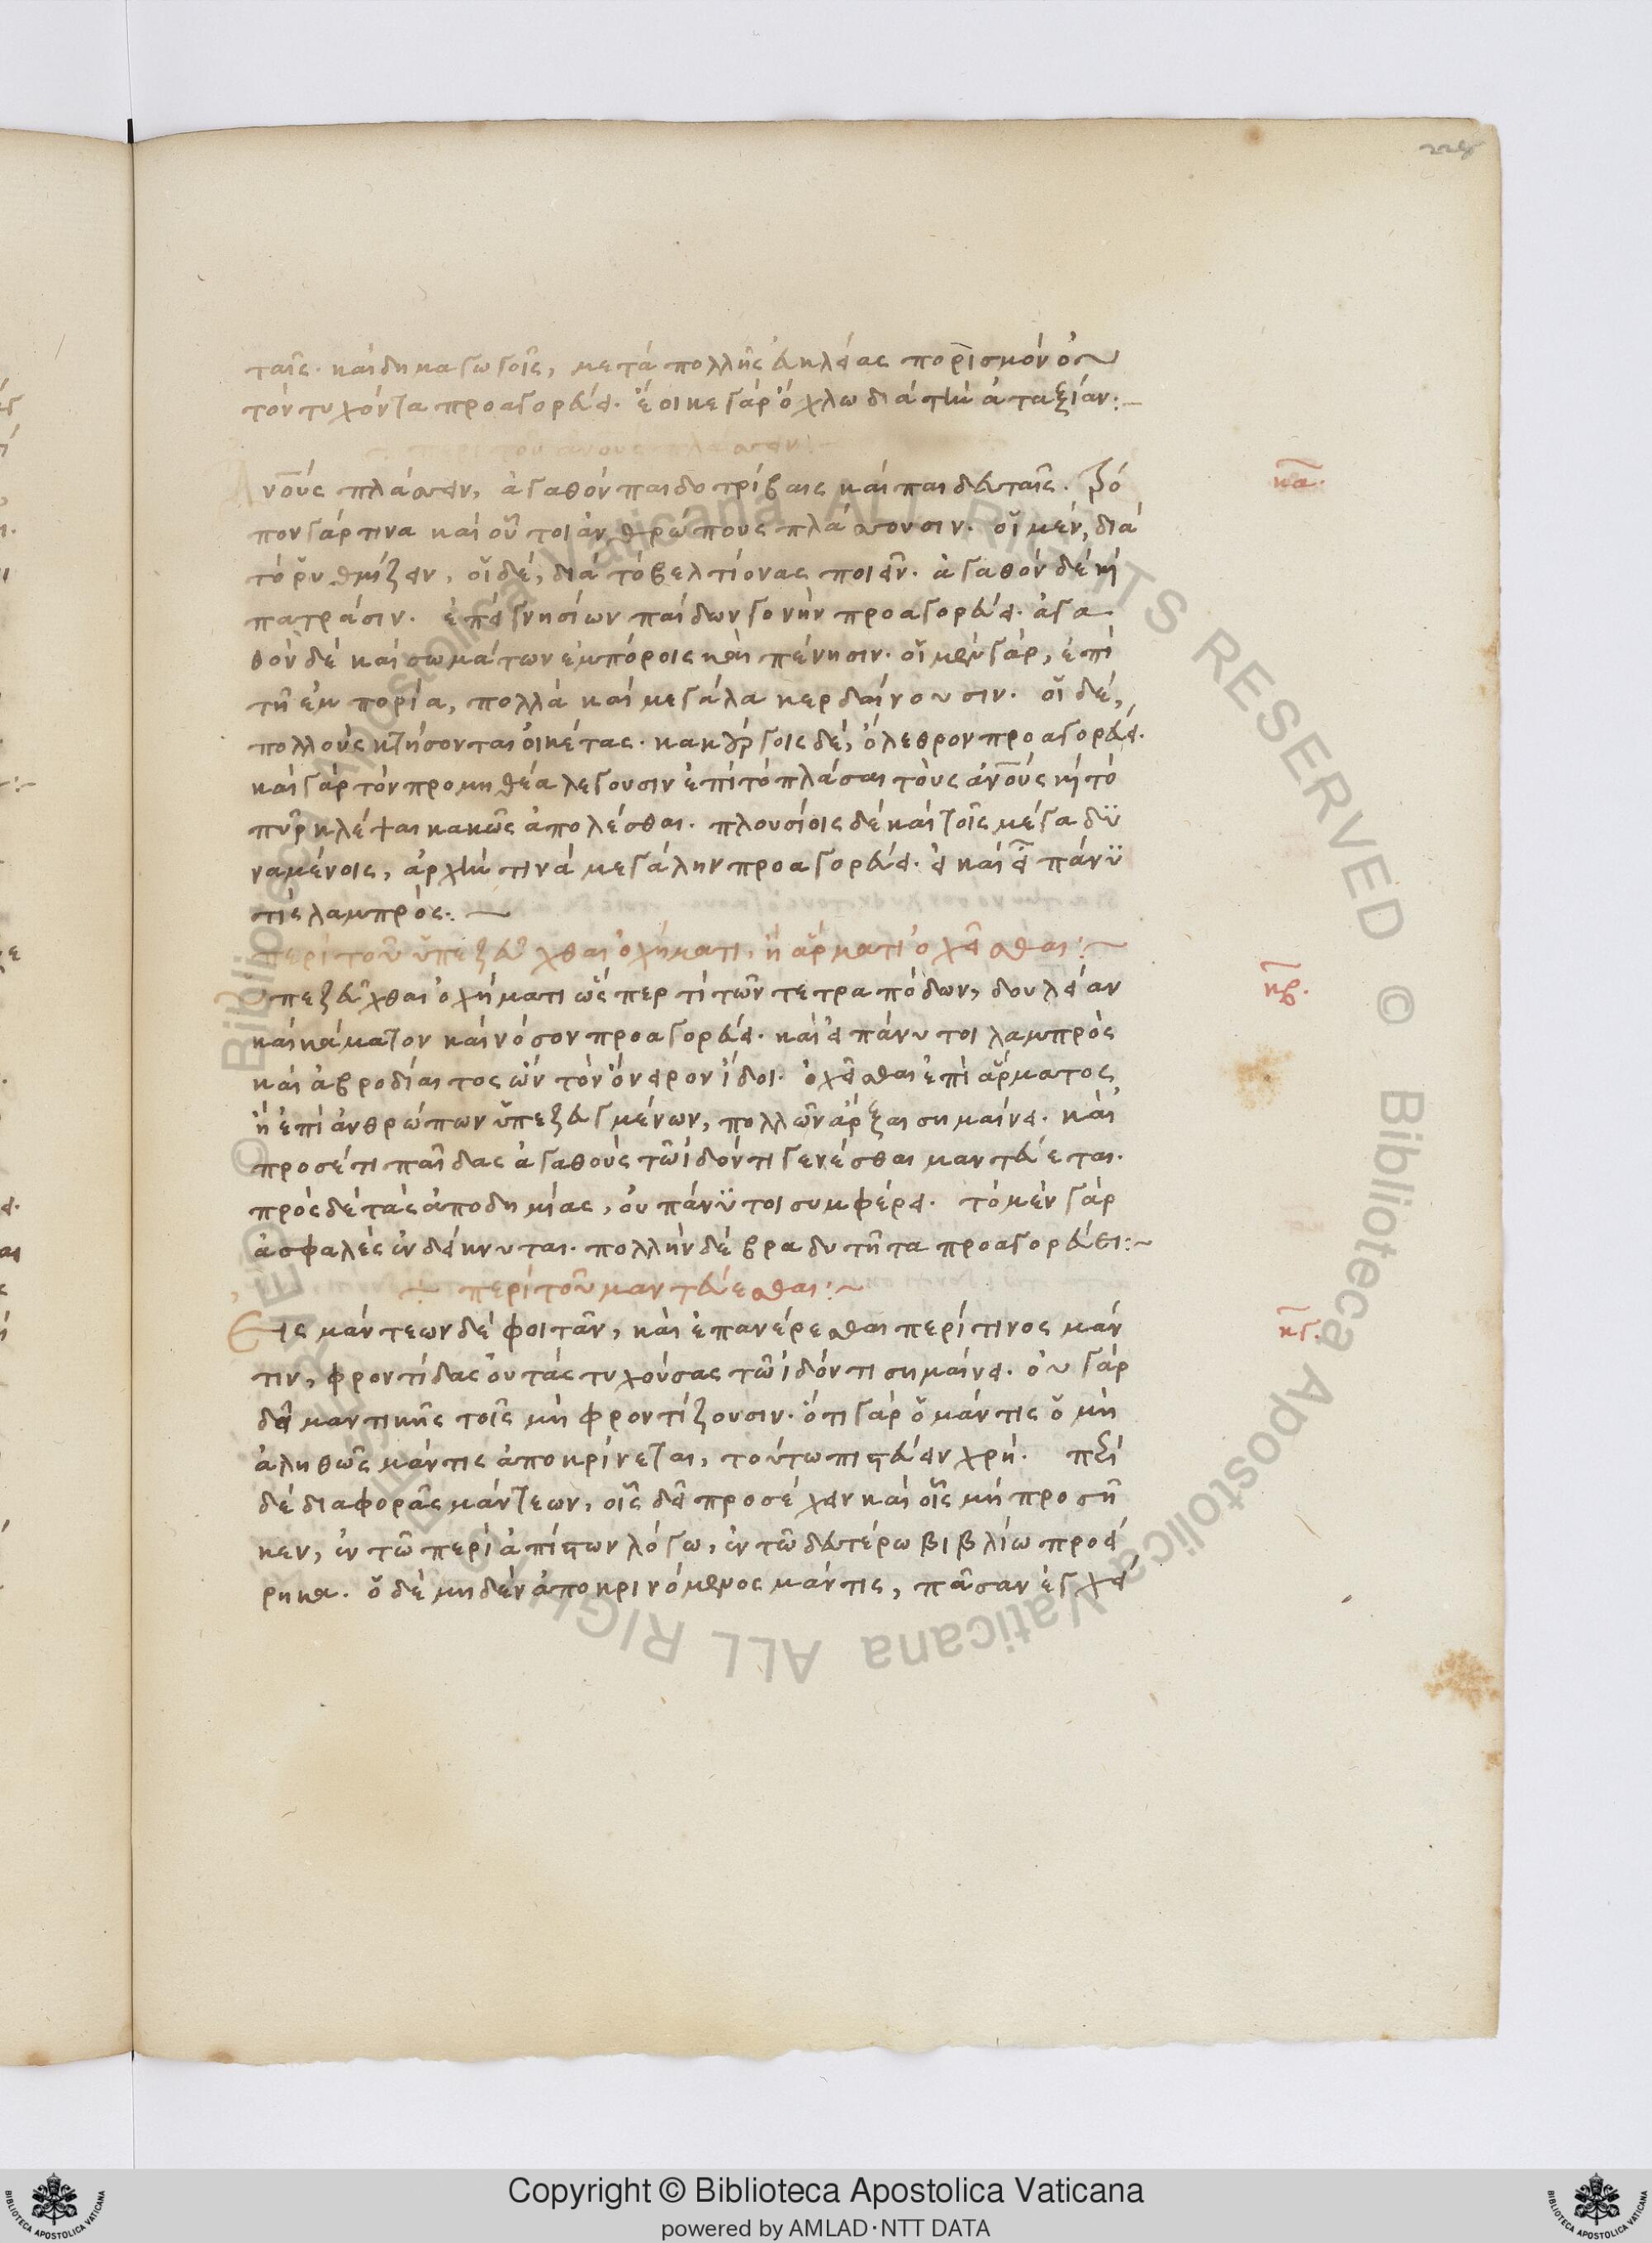 ταῖς. καὶ δημαγωγοῖς, μετὰ πολλῆς εὐκλείας πορισμὸν οὐ
τὸν τυχόντα προαγορεύει. ἔοικε γὰρ ὄχλω διὰ τὴν ἀταξίαν:~
περὶ τοῦ ἀνους πλάσσειν:
Ανους πλάσσειν, ἀγαθὸν παιδοτρίβαις καὶ παιδευταῖς. τρό
πον γάρ τινα καὶ οὗτοι ἀνθρώπους πλάσσουσιν. οἱ μὲν, διὰ
τὸ ῥυθμίζειν, οἱ δὲ, διὰ τὸ βελτίονας ποιεῖν. ἀγαθὸν δὲ καὶ
πατράσιν. ἐπεὶ γνησίων παίδων γονὴν προαγορεύει. ἀγα
θὸν δὲ καὶ σωμάτων ἐμπόροις καὶ πένησιν. οἱ μὲν γὰρ, ἐπὶ
τῆ ἐμπορία, πολλὰ καὶ μεγάλα κερδαίνουσιν. οἱ δὲ,
πολλοὺς κτήσονται οἰκέτας. κακούργοις δὲ, ὄλεθρον προαγορεύει.
καὶ γὰρ τὸν προμηθέα λέγουσιν ἐπὶ τὸ πλάσαι τοὺς ἀνους καὶ τὸ
πῦρ κλέψαι κακῶς ἀπολέσθαι. πλουσίοις δὲ καὶ τοῖς μέγα δϋ
ναμένοις, ἀρχήν τινα μεγάλην προαγορεύει. εἰ καὶ εἴη πάνϋ
τις λαμπρός.~
περὶ τοῦ ὑπεζεῦχθαι ὀχήματι, ἢ ἅρματι ὀχεῖσθαι:~
Ὑπεζεῦχθαι ὀχήματι ὥσπερ τὶ τῶν τετραπόδων, δουλείαν
καὶ κάματον καὶ νόσον προαγορεύει. καὶ εἰ πάνυ τοι λαμπρὸς
καὶ ἁβροδίαιτος ὢν τὸν ὄνειρον ἴδοι. ὀχεῖσθαι ἐπὶ ἅρματος
ἢ ἐπὶ ἀνθρώπων ὑπεζευγμένων, πολλῶν ἄρξαι σημαίνει. καὶ
προσέτι παῖδας ἀγαθοὺς τῶ ἰδόντι γενέσθαι μαντεύεται.
πρὸς δὲ τὰς ἀποδημίας, οὐ πάνϋ τοι συμφέρει. τὸ μὲν γὰρ
ἀσφαλὲς ἐνδείκνυται. πολλὴν δὲ βραδυτῆτα προαγορεύει:~
περὶ τοῦ μαντεύεσθαι:~
Εἰς μάντεων δὲ φοιτᾶν, καὶ ἐπανέρεσθαι περί τινος μάν
τιν, φροντίδας οὐ τὰς τυχούσας τῶ ἰδόντι σημαίνει. οὐ γὰρ
δεῖ μαντικῆς τοῖς μὴ φροντίζουσιν. ὅτι γὰρ ὁ μάντις ὁ μὴ
ἀληθῶς μάντις ἀποκρίνεται, τούτω πιστεύειν χρή. περὶ
δὲ διαφορᾶς μάντεων, οἷς δεῖ προσέχειν καὶ οἷς μὴ προσῆ
κεν, ἐν τῶ περὶ ἀπίστων λόγω, ἐν τῶ δευτέρω βιβλίω προεί
ρηκα. ὁ δὲ μηδὲν ἀποκρινόμενος μάντις, πᾶσαν ἐγχεί
κα.
κβ.
κγ.
Copyright © Biblioteca Apostolica Vaticana
powered by AMLAD·NTT DATA